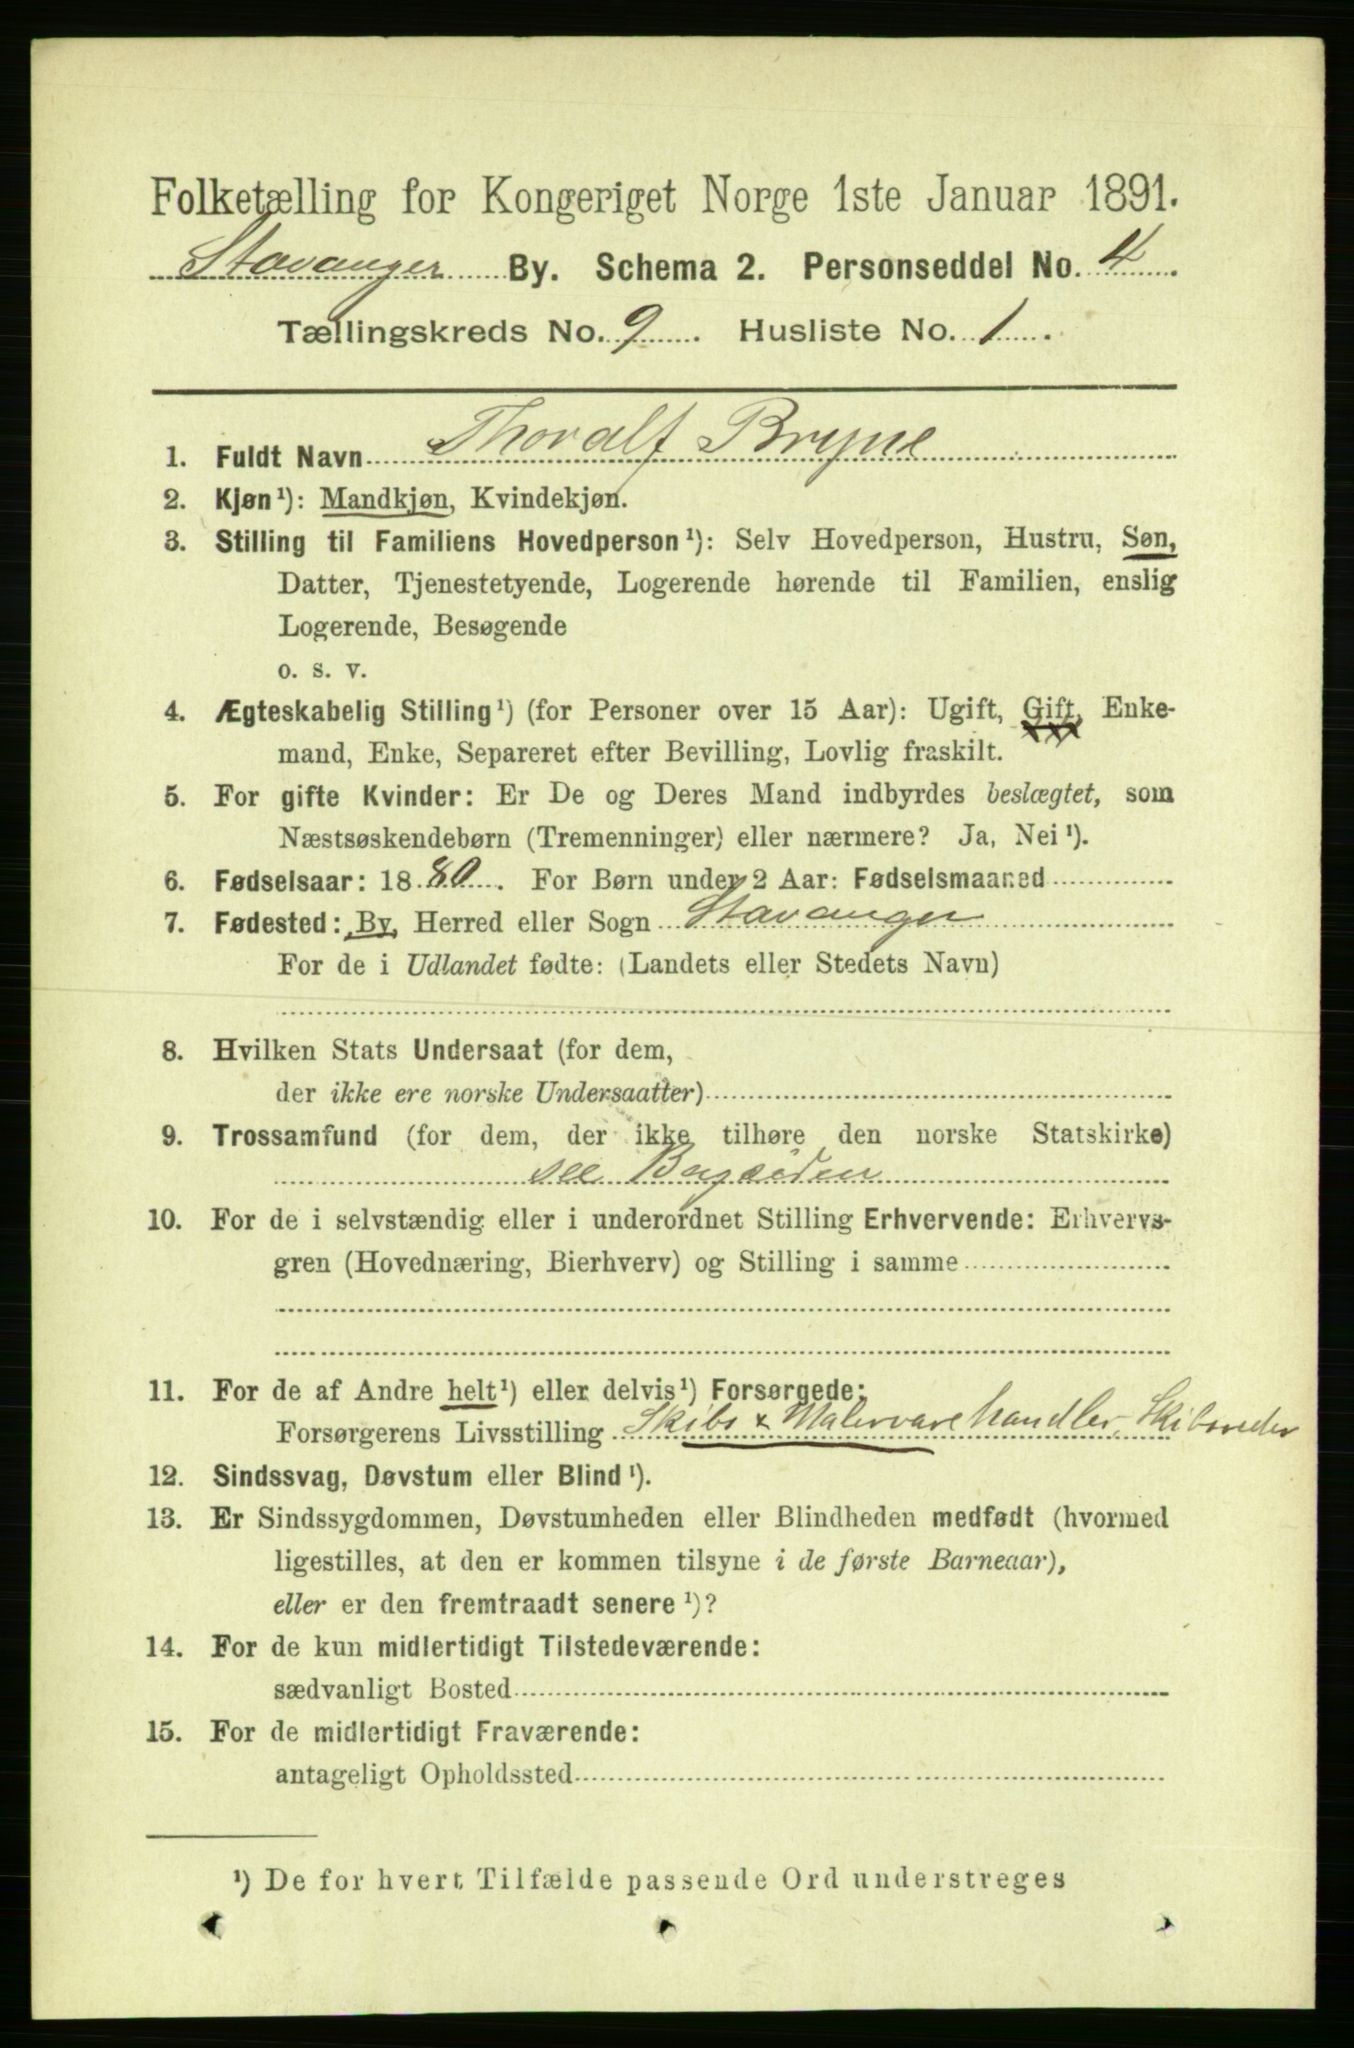 Folketælling for Kongeriget Norge 1ste Januar 1891.
Stavanger By. Schema 2. Personseddel No. 4
Tællingskreds No. 9. Husliste No. 1.
1. Fuldt Navn Thoralf Bryne
2. Kjøn¹): Mandkjøn, Kvindekjøn.
3. Stilling til Familiens Hovedperson¹): Selv Hovedperson, Hustru, Søn,
Datter, Tjenestetyende, Logerende hørende til Familien, enslig
Logerende, Besøgende
o. s. v.
4. Ægteskabelig Stilling¹) (for Personer over 15 Aar): Ugift, Gift, Enke-
mand, Enke, Separeret efter Bevilling, Lovlig fraskilt.
5. For gifte Kvinder: Er De og Deres Mand indbyrdes beslægtet, som
Næstsøskendebørn (Tremenninger) eller nærmere? Ja, Nei¹).
6. Fødselsaar: 1880. For Børn under 2 Aar: Fødselsmaaned
7. Fødested: By, Herred eller Sogn Stavanger
For de i Udlandet fødte: (Landets eller Stedets Navn)
8. Hvilken Stats Undersaat (for dem,
der ikke ere norske Undersaatter)
9. Trossamfund (for dem, der ikke tilhøre den norske Statskirke)
see Bagsiden
10. For de i selvstændig eller i underordnet Stilling Erhvervende: Erhvervs-
gren (Hovednæring, Bierhverv) og Stilling i samme
11. For de af Andre helt¹) eller delvis¹) Forsørgede:
Forsørgerens Livsstilling Skibs & Malervarehandler, Skibsreder
12. Sindssvag, Døvstum eller Blind¹).
13. Er Sindssygdommen, Døvstumheden eller Blindheden medfødt (hvormed
ligestilles, at den er kommen tilsyne i de første Barneaar),
eller er den fremtraadt senere¹)?
14. For de kun midlertidigt Tilstedeværende:
sædvanligt Bosted
15. For de midlertidigt Fraværende:
antageligt Opholdssted
¹) De for hvert Tilfælde passende Ord understreges